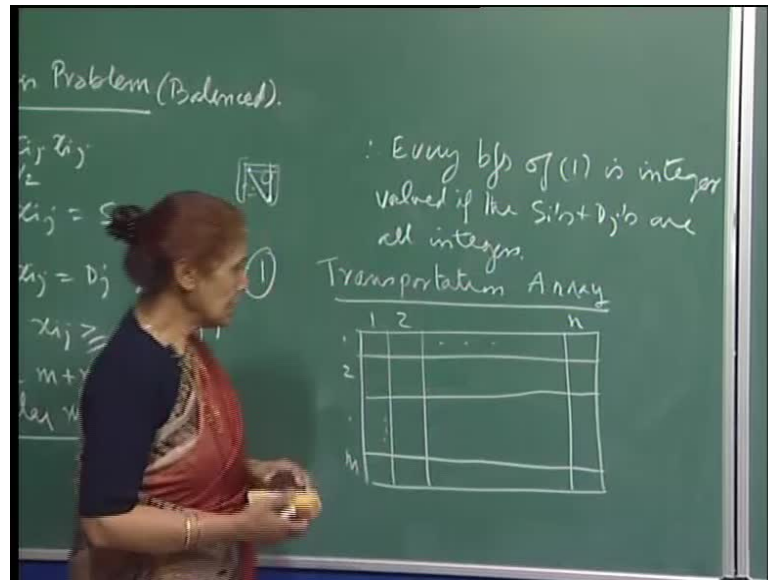 n Problem (Balenced).
xij
1/2
xij = S
xij = Dj
①
xij ≥
m+n
∴ Every bfs of (1) is integer
valued if the Si's + Dj's are
all integers.
Transportation Array
1 2 n
. . .
2
m